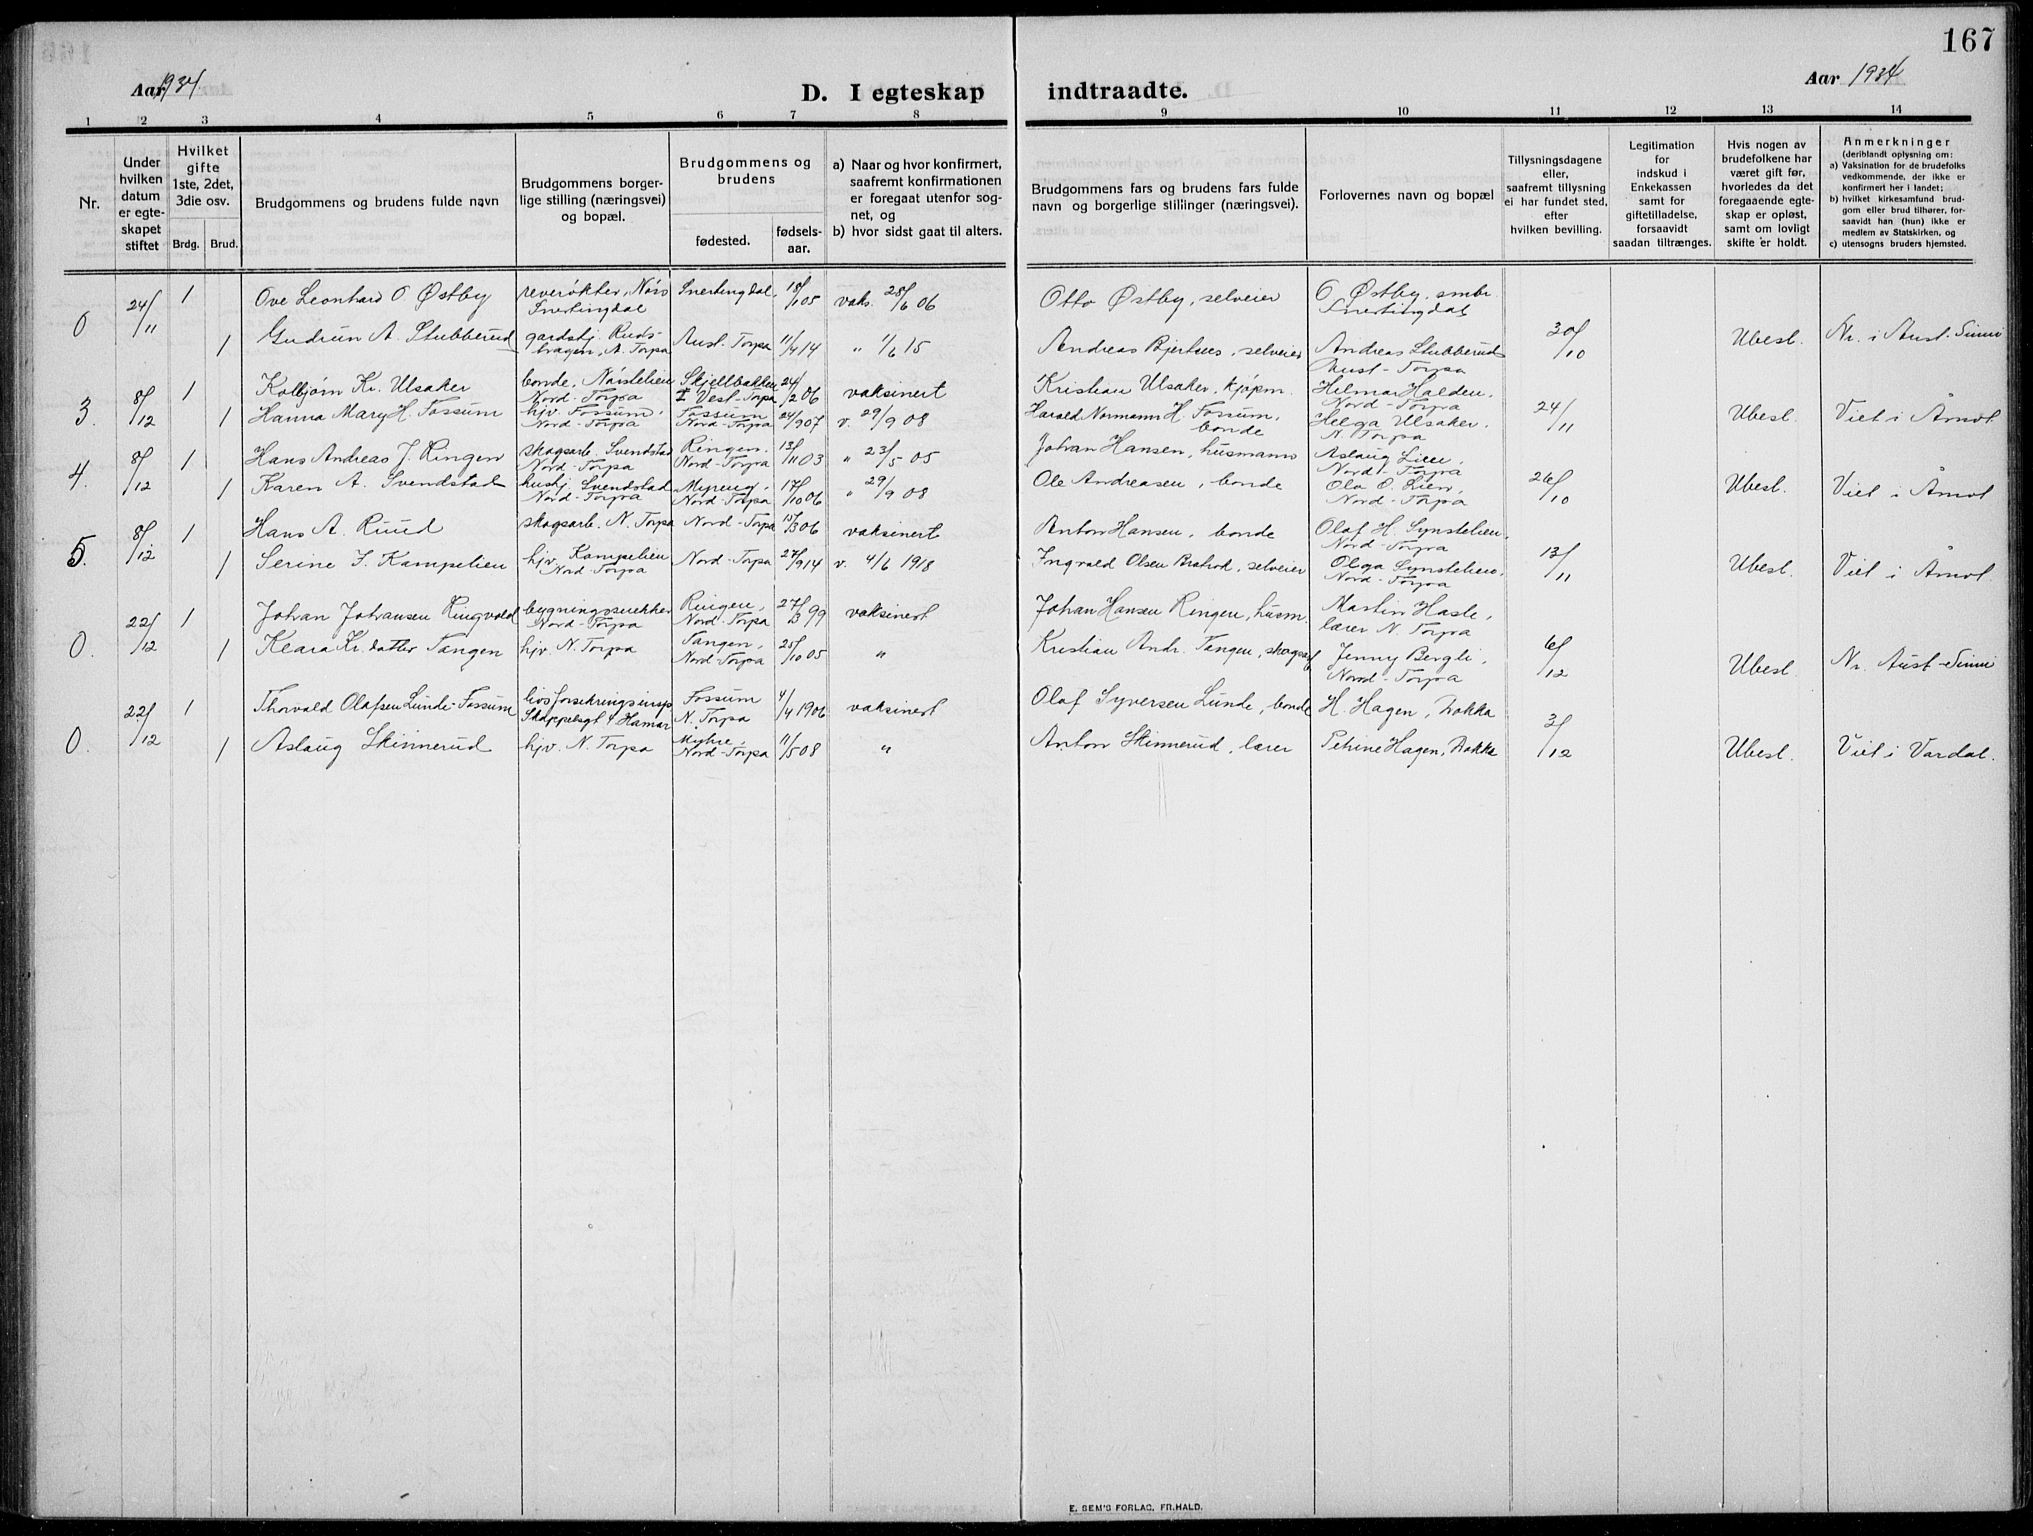 167
Aar 1934.
D. I egteskap indtraadte.
Aar 1934
1 2 3 4 5 6 7 8 9 10 11 12 13 14
Nr.
Under hvilken datum er egteskapet stiftet
Hvilket gifte 1ste, 2det, 3die osv.
Brdg. Brud.
Brudgommens og brudens fulde navn
Brudgommens borgerlige stilling (næringsvei) og bopæl.
Brudgommens og brudens
fødested.
fødselsaar.
a) Naar og hvor konfirmert, saafremt konfirmationen er foregaat utenfor sognet, og
b) hvor sidst gaat til alters.
Brudgommens fars og brudens fars fulde navn og borgerlige stillinger (næringsvei).
Forlovernes navn og bopæl
Tillysningsdagene eller, saafremt tillysning ei har fundet sted, efter hvilken bevilling.
Legitimation for indskud i Enkekassen samt for giftetilladelse, forsaavidt saadan tiltrænges.
Hvis nogen av brudefolkene har været gift før, hvorledes da det foregaaende egteskap er opløst, samt om lovligt skifte er holdt.
Anmerkninger
(deriblandt oplysning om:
a) Vaksination for de brudefolks vedkommende, der ikke er konfirmert her i landet;
b) hvilket kirkesamfund brudgom eller brud tilhører, forsaavidt han (hun) ikke er medlem av Statskirken, og
c) utensogns bruders hjemsted.
0 24/11 1 Ove Leonhard O. Østby reverøkter, Nörs Snertingdal Snertingdal, 18/1 05 vaks. 28/6 06 Otto Østby, selveier O. Østby, smbr. Snertingdal
1 Gudrun A. Stubberud gardstj. Rudsbragen, A. Torpa Aust-Torpa 11/4 14 " 1/6 15 Andreas Bjertnes, selveier Andreas Stubberud Aust-Torpa 30/10 Ubesl. Nr. i Aust-Sinni
3. 8/12 1 Kolbjørn Kr. Ulsaker bonde, Nørstelien Nord-Torpa Skjellbakken i Vest-Torpa 24/2 06 vaksinert Kristian Ulsaker, kjøpm. Hilmar Halden, Nord-Torpa
1 Hanna Mary H. Fossum hjv. Fossum, Nord-Torpa Fossum Nord-Torpa 24/9 07 v. 29/9 08 Harald Normann H. Fossum, bonde Helga Ulsaker, N. Torpa 24/11 Ubesl. Viet i Åmot
4. 8/12 1 Hans Andreas J. Ringen skogsarb. Svendstad Nord-Torpa Ringen, Nord-Torpa 13/11 03 " 23/5 05 Johan Hansen, husmann Aslaug Lien, Nord-Torpa
1 Karen A. Svendstad hustj. Svendstad Nord-Torpa Myreng, Nord-Torpa 17/10 06 " 29/9 08 Ole Andreasen, bonde Ola O. Lien, Nord-Torpa 26/10 Ubesl. Viet i Åmot
5. 8/12 1 Hans A. Ruud skogsarb. N. Torpa Nord-Torpa 15/3 06 vaksinert Anton Hansen, bonde Olaf H. Synstelien, Nord-Torpa
1 Serine I. Kampelien hjv. Kampelien Nord-Torpa Nord-Torpa 27/9 14 v. 4/6 1918 Ingvald Olsen Bratrod, selveier Olga Synstelien, Nord-Torpa 13/11 Ubesl. Viet i Åmot
0. 22/12 1 Johan Johansen Ringvold bygningssnekker Nord-Torpa Ringen, Nord-Torpa 27/3 99 vaksinert Johan Hansen Ringen, husm. Martin Hasle, lærer N. Torpa
1 Klara Kr.datter Tangen hjv. N. Torpa Tangen, Nord-Torpa 25/10 05 " Kristian Andr. Tangen, skogsarb Jenny Bergli, Nord-Torpa 6/12 Ubesl. Nr. Aust-Sinni
0. 22/12 1 Thorvald Olafsen Lunde-Fossum livsforsikringsinsp. Skappelsgt. 4 Hamar Fossum N. Torpa 4/4 1906 vaksinert Olaf Syversen Lunde, bonde H. Hagen, Dokka
1 Aslaug Skinnerud hjv. N. Torpa Myhre, Nord-Torpa 11/5 08 " Anton Skinnerud, lærer Petrine Hagen, Dokka 3/12 Ubesl. Viet i Vardal.
E. SEM'S FORLAG, FR.HALD.